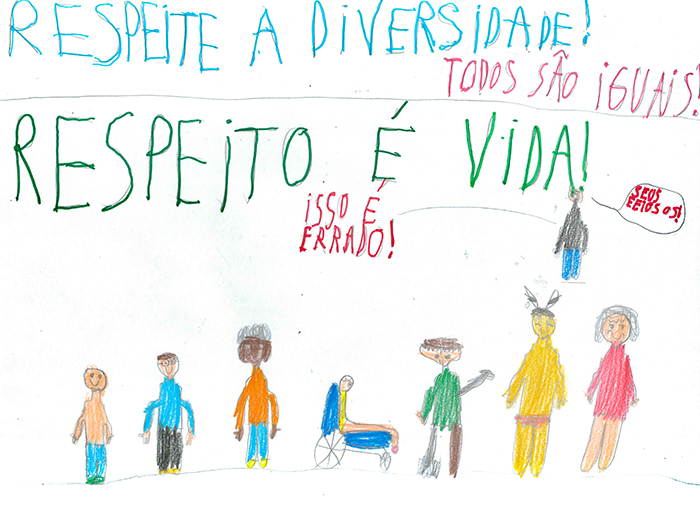 RESPEITE A DIVERSIDADE!
TODOS SÃO IGUAIS!
RESPEITO É VIDA!
ISSO É
ERRADO!
SEUS